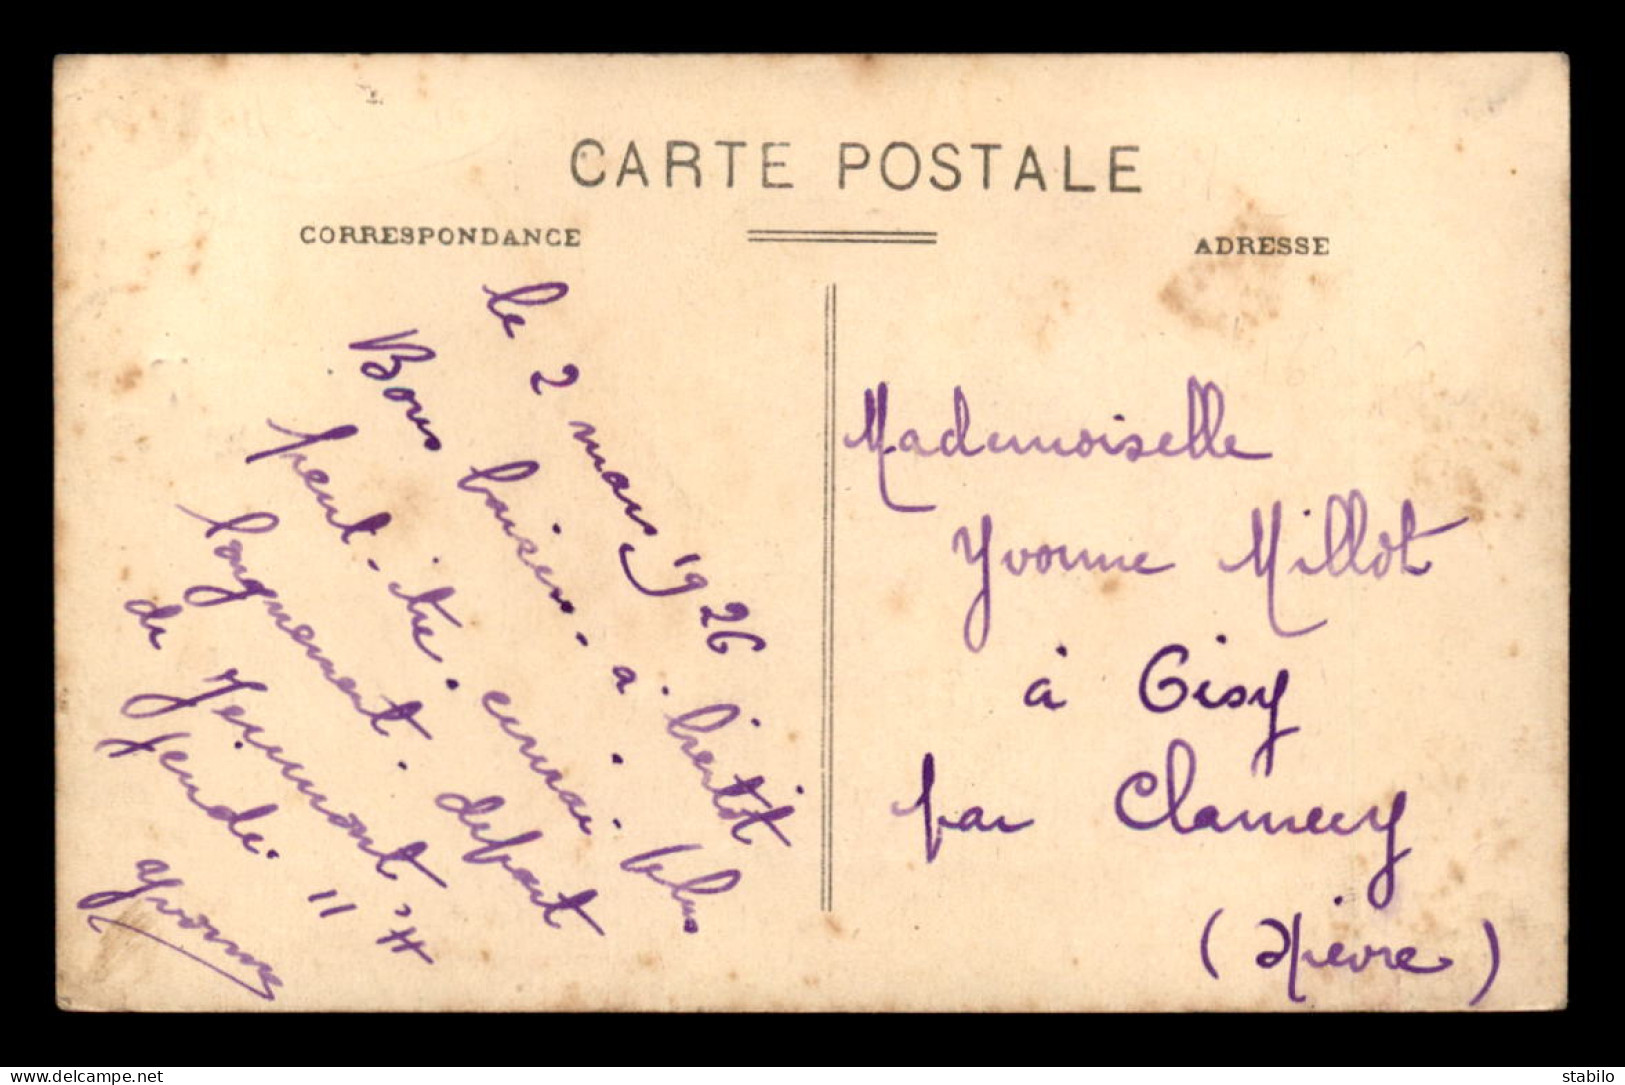 CARTE POSTALE
CORRESPONDANCE
ADRESSE
le 2 mars 1926
Bons baisers. a. bientôt
peut-être. plus
longuement. depart
de Jeumont. H
Jeudi. 11
Yvonne
Mademoiselle
Yvonne Millot
à Gisy
par Clamecy
(Nièvre)
delcampe.net
stabilo